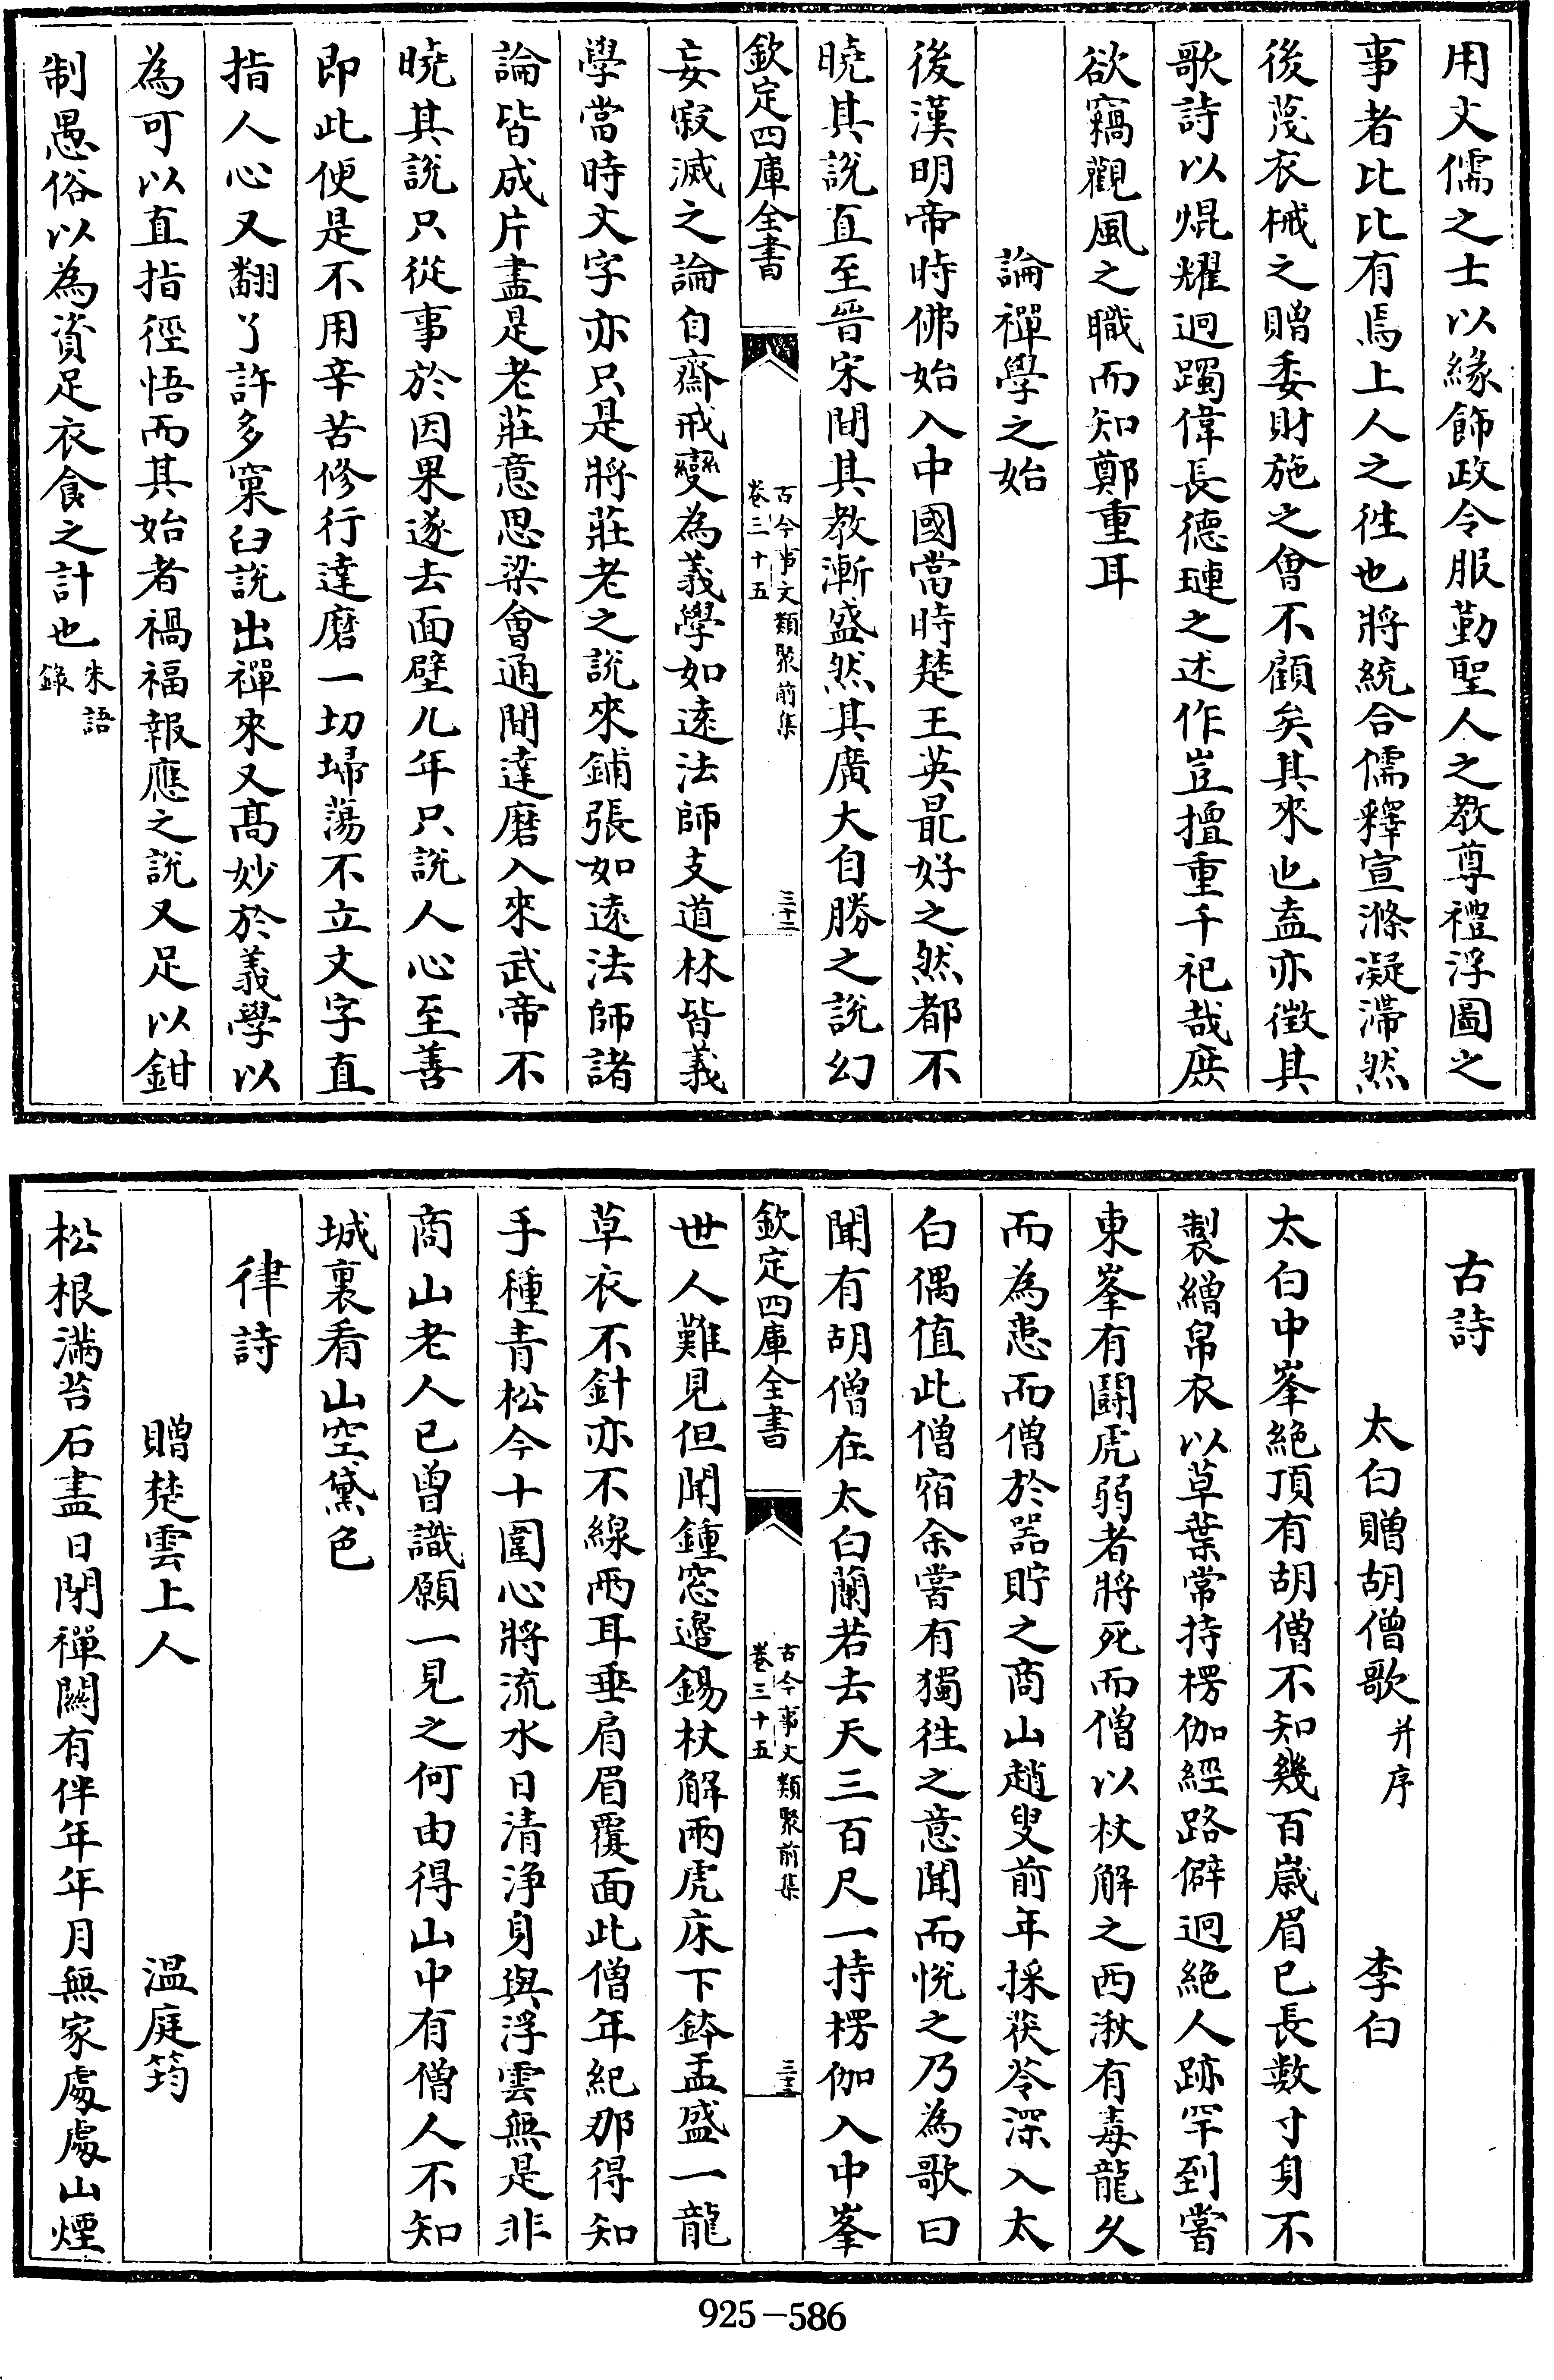 用文儒之士以緣飾政令服勤聖人之教尊禮浮圖之
事者比比有焉上人之徃也將統合儒釋宣滌凝滯然
後蔑衣裓之贈委財施之會不顧矣其來也盍亦徵其
歌詩以焜耀迥躅偉長德璉之述作豈擅重千祀哉庶
欲竊觀風之職而知鄭重耳
論禪學之始
後漢明帝時佛始入中國當時楚王英最好之然都不
曉其說直至晉宋間其教漸盛然其廣大自勝之說幻
欽定四庫全書
古今事文類聚前集
卷三十五
三十二
妄寂滅之論自齋戒變為義學如逺法師支道林皆義
學當時文字亦只是將莊老之說來鋪張如逺法師諸
論皆成片盡是老莊意思梁會通間達磨入來武帝不
曉其說只從事於因果遂去面壁九年只說人心至善
即此便是不用辛苦修行達磨一切埽蕩不立文字直
指人心又翻了許多窠臼說出禪來又髙妙於義學以
為可以直指徑悟而其始者禍福報應之說又足以鉗
制愚俗以為資足衣食之計也
朱語
錄
古詩
太白贈胡僧歌
并序
李白
太白中峯絶頂有胡僧不知幾百歲眉已長數寸身不
製繒帛衣以草葉常持楞伽經路僻迥絶人跡罕到嘗
東峯有鬭虎弱者將死而僧以杖解之西湫有毒龍久
而為患而僧於器貯之商山趙叟前年採茯苓深入太
白偶值此僧宿余嘗有獨徃之意聞而悅之乃為歌曰
聞有胡僧在太白蘭若去天三百尺一持楞伽入中峯
欽定四庫全書
古今事文類聚前集
卷三十五
三十三
世人難見但聞鍾窓邉錫杖解兩虎床下鉢盂盛一龍
草衣不針亦不線兩耳垂肩眉覆面此僧年紀那得知
手種青松今十圍心將流水日清浄身與浮雲無是非
商山老人已曾識願一見之何由得山中有僧人不知
城裏看山空黛色
律詩
贈楚雲上人
溫庭筠
松根滿苔石盡日閉禪關有伴年年月無家處處山煙
925-586